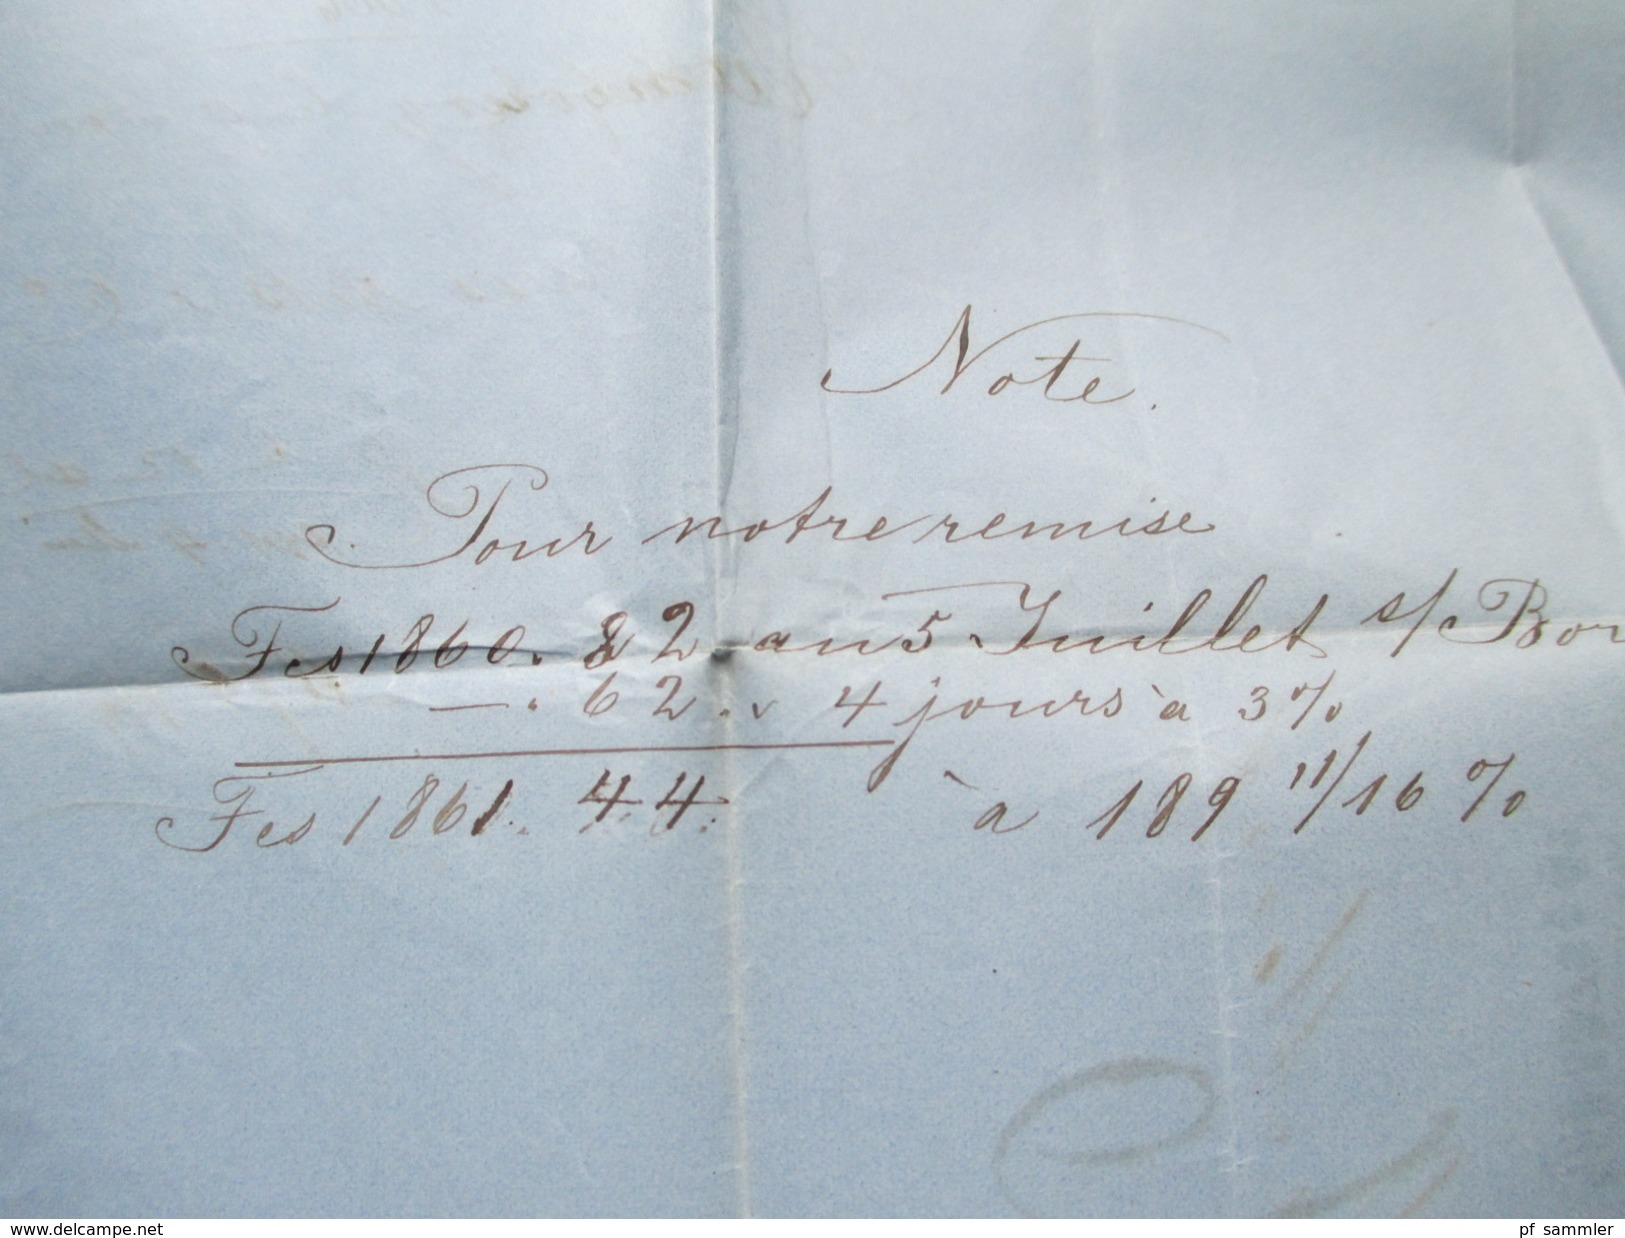 Note.
Pour notre remise
Fcs 1860. 82 au 5 Juillet s/ Bor
—. 62. " 4 jours à 3%
Fcs 1861. 44. à 189 11/16 %
www.delcampe.net
pf_sammler